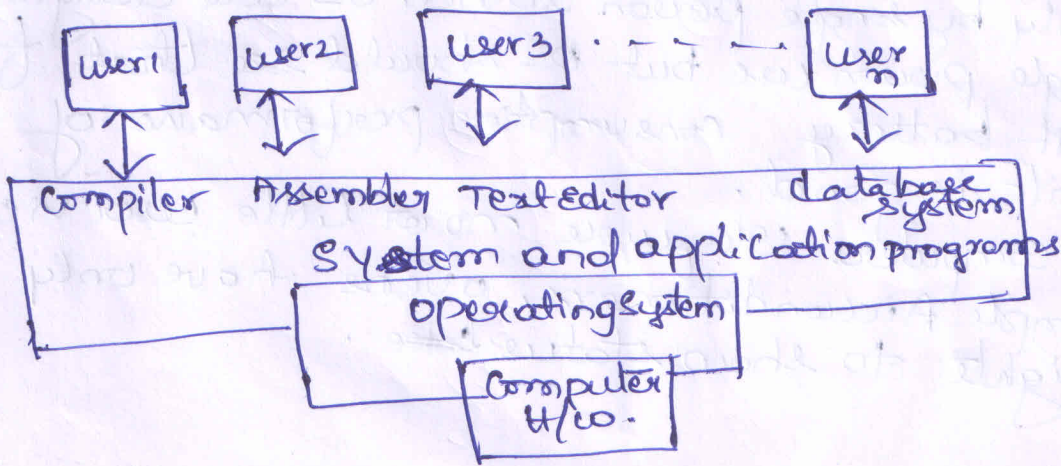 user1 user2 user3 . - - - - user n
Compiler Assembler Text Editor database system
System and application programs
operating system
Computer H/W.